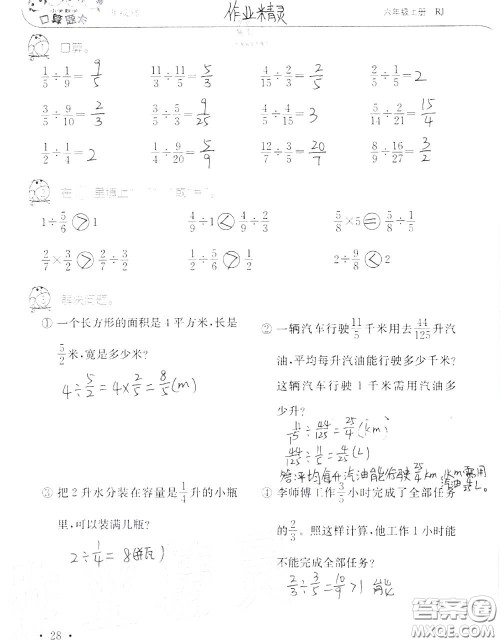 小学数学
口算题卡 作业精灵 六年级上册 RJ
① 口算。
1/5÷1/9=9/5 11/3÷11/5=5/3 4/15÷2/3=2/5 2/5÷1/5=2
3/5÷9/10=2/3 9/28÷ = 9/25 4/5÷4/15=3 5/ ÷2/ =15/4
1/2÷1/4=2 1/4÷9/20=5/9 12/ ÷3/5=20/7 8/9÷16/27=3/2
② 在 里填上“ ”“ ”或“=”。
1÷5/6>1 4/9÷1<4/9÷2/3 5/8×5=5/8÷1/5
2/7×3/2>2/7÷3/2 2÷9/8<2
③ 解决问题。
① 一个长方形的面积是4平方米,长是
5/2米,宽是多少米?
4÷5/2=4×2/5=8/5(m)
② 一辆汽车行驶11/5千米用去44/125升汽
油,平均每升汽油能行驶多少千米?
这辆汽车行驶1千米需用汽油多
少升?
11/5÷44/125=25/4(km)
44/125÷11/5=4/25(L)
答:平均每升汽油能行驶25/4km,1km需用
汽油4/25L。
③ 把2升水分装在容量是1/4升的小瓶
里,可以装满几瓶?
2÷1/4=8(瓶)
④ 李师傅工作3/5小时完成了全部任务
的2/3。照这样计算,他工作1小时能
不能完成全部任务?
2/3÷3/5=10/9>1 能
28
答案圈
MXQE.COM